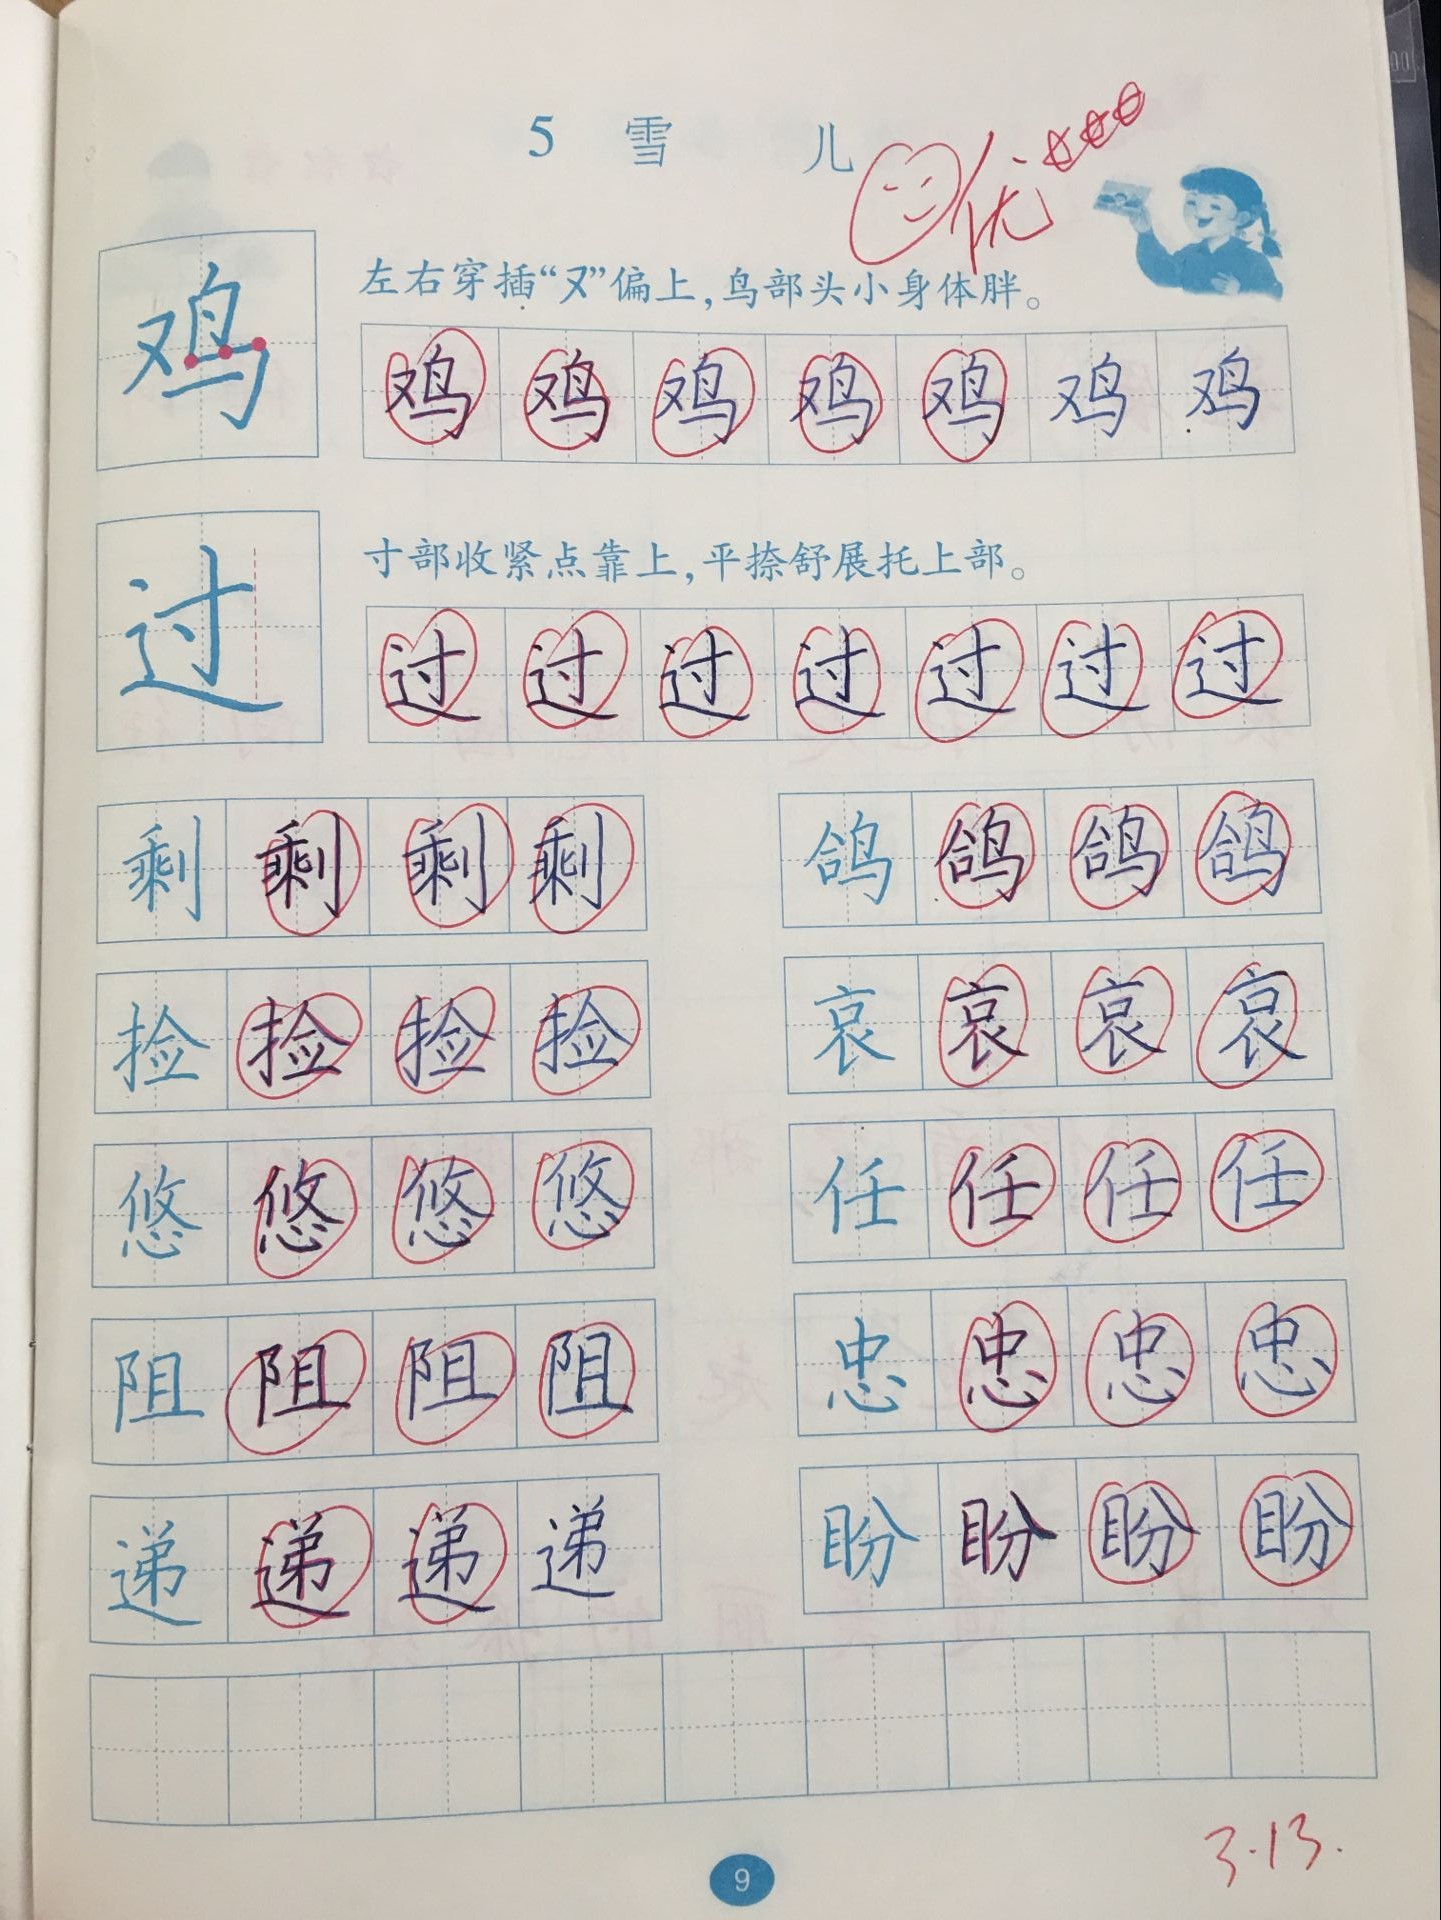 5 雪 儿
优
左右穿插“又”偏上，鸟部头小身体胖。
鸡 鸡 鸡 鸡 鸡 鸡 鸡 鸡
寸部收紧点靠上，平捺舒展托上部。
过 过 过 过 过 过 过 过
剩 剩 剩 剩 鸽 鸽 鸽 鸽
捡 捡 捡 捡 哀 哀 哀 哀
悠 悠 悠 悠 任 任 任 任
阻 阻 阻 阻 忠 忠 忠 忠
递 递 递 递 盼 盼 盼 盼
3.13.
9